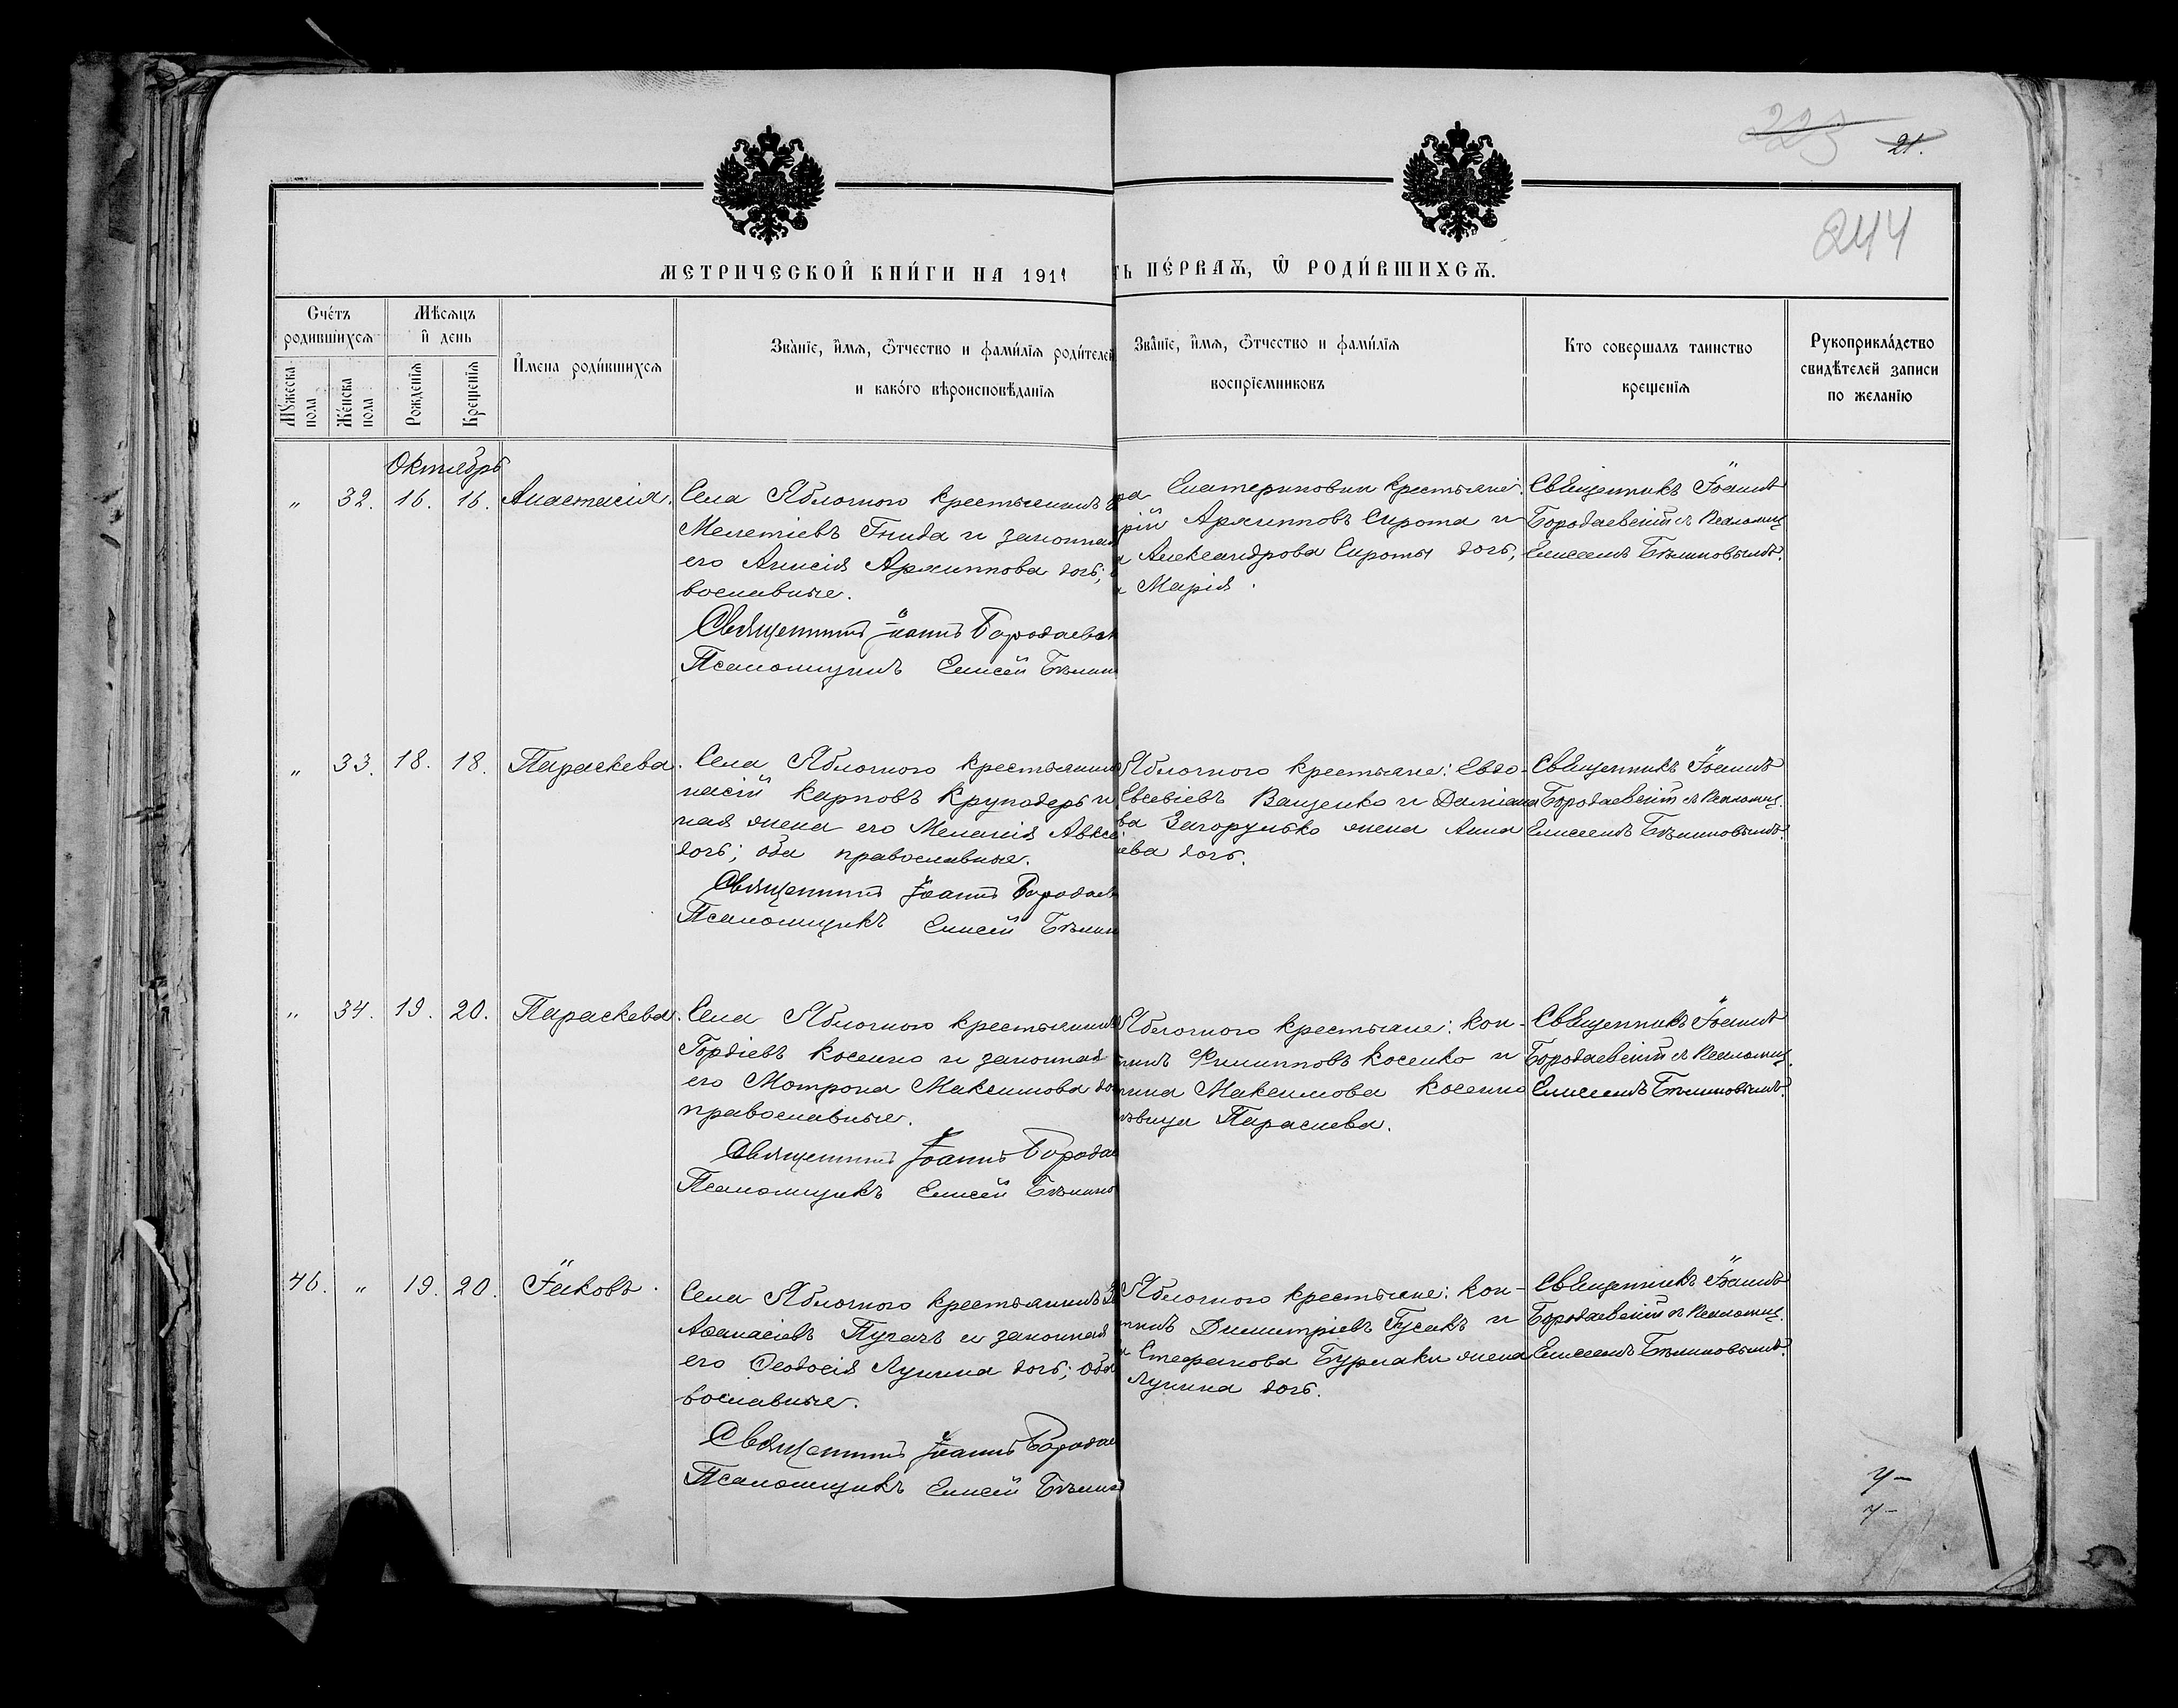 223 21.
244
МЕТРИЧЕСКОЙ КНИ́ГИ НА 1911
ть ПЕ́РВАѦ, Ѿ РОДИ́ВШИХСѦ.
Счéтъ родившихсѧ
Мꙋ́жеска пола
Жéнска пола
Мѣсѧцъ и҆ день
Рожденїѧ
Крещенїѧ
И҆мена роди́вшихсѧ
Звáнїе, и҆мѧ, ѻ҆тчество и фами́лїѧ роди́телей
и какóго вѣроисповѣданїѧ
Звáнїе, и҆мѧ, ѻ҆тчество и фами́лїѧ
воспрїемниковъ
Кто совершалъ таинство
крещенїѧ
Рукоприклáдство
свидѣ́телей записи
по желанїю
Октябрь
" 32. 16. 16. Анастасія.
Села Яблочного крестьянинъ
Мелетіевъ Гнида и законная
его Анисія Архиппова дочь;
вославные.
Священникъ Іоаннъ Бородаевск
Псаломщикъ Елисей Бѣлин
ра Екатериновки крестьяне:
рій Архипповъ Сирота и
Александрова Сироты дочь,
Марія.
Священникъ Іоаннъ
Бородаевскій съ Псаломщ.
Елисеемъ Бѣлиновымъ.
" 33. 18. 18. Параскева.
Села Яблочного крестьянинъ
насій Карповъ Круподеръ и
ная жена его Меланія Авксе
дочь; оба православные.
Священникъ Іоаннъ Бородаев
Псаломщикъ Елисей Бѣлин
Яблочного крестьяне: Евдо-
Евсевіевъ Ващенко и Даміана
ва Загорулько жена Анна
ева дочь.
Священникъ Іоаннъ
Бородаевскій съ Псаломщ.
Елисеемъ Бѣлиновымъ.
" 34. 19. 20. Параскева.
Села Яблочного крестьянинъ
Гордіевъ Косенко и законная
его Мотрона Максимова до
православные.
Священникъ Іоаннъ Бородае
Псаломщикъ Елисей Бѣлино
Яблочного крестьяне: Кон-
тинъ Филипповъ Косенко и
Максимова Косенко
дѣвица Параскева.
Священникъ Іоаннъ
Бородаевскій съ Псаломщ.
Елисеемъ Бѣлиновымъ.
46. " 19. 20. Іаковъ.
Села Яблочного крестьянинъ
Аѳанасіевъ Пугачъ и законная
его Ѳеодосія Лукина дочь; оба
вославные.
Священникъ Іоаннъ Бородае
Псаломщикъ Елисей Бѣлин
Яблочного крестьяне: Кон-
тинъ Димитріевъ Гусакъ и
Стефанова Бурлаки жена
Лукина дочь.
Священникъ Іоаннъ
Бородаевскій съ Псаломщ.
Елисеемъ Бѣлиновымъ.